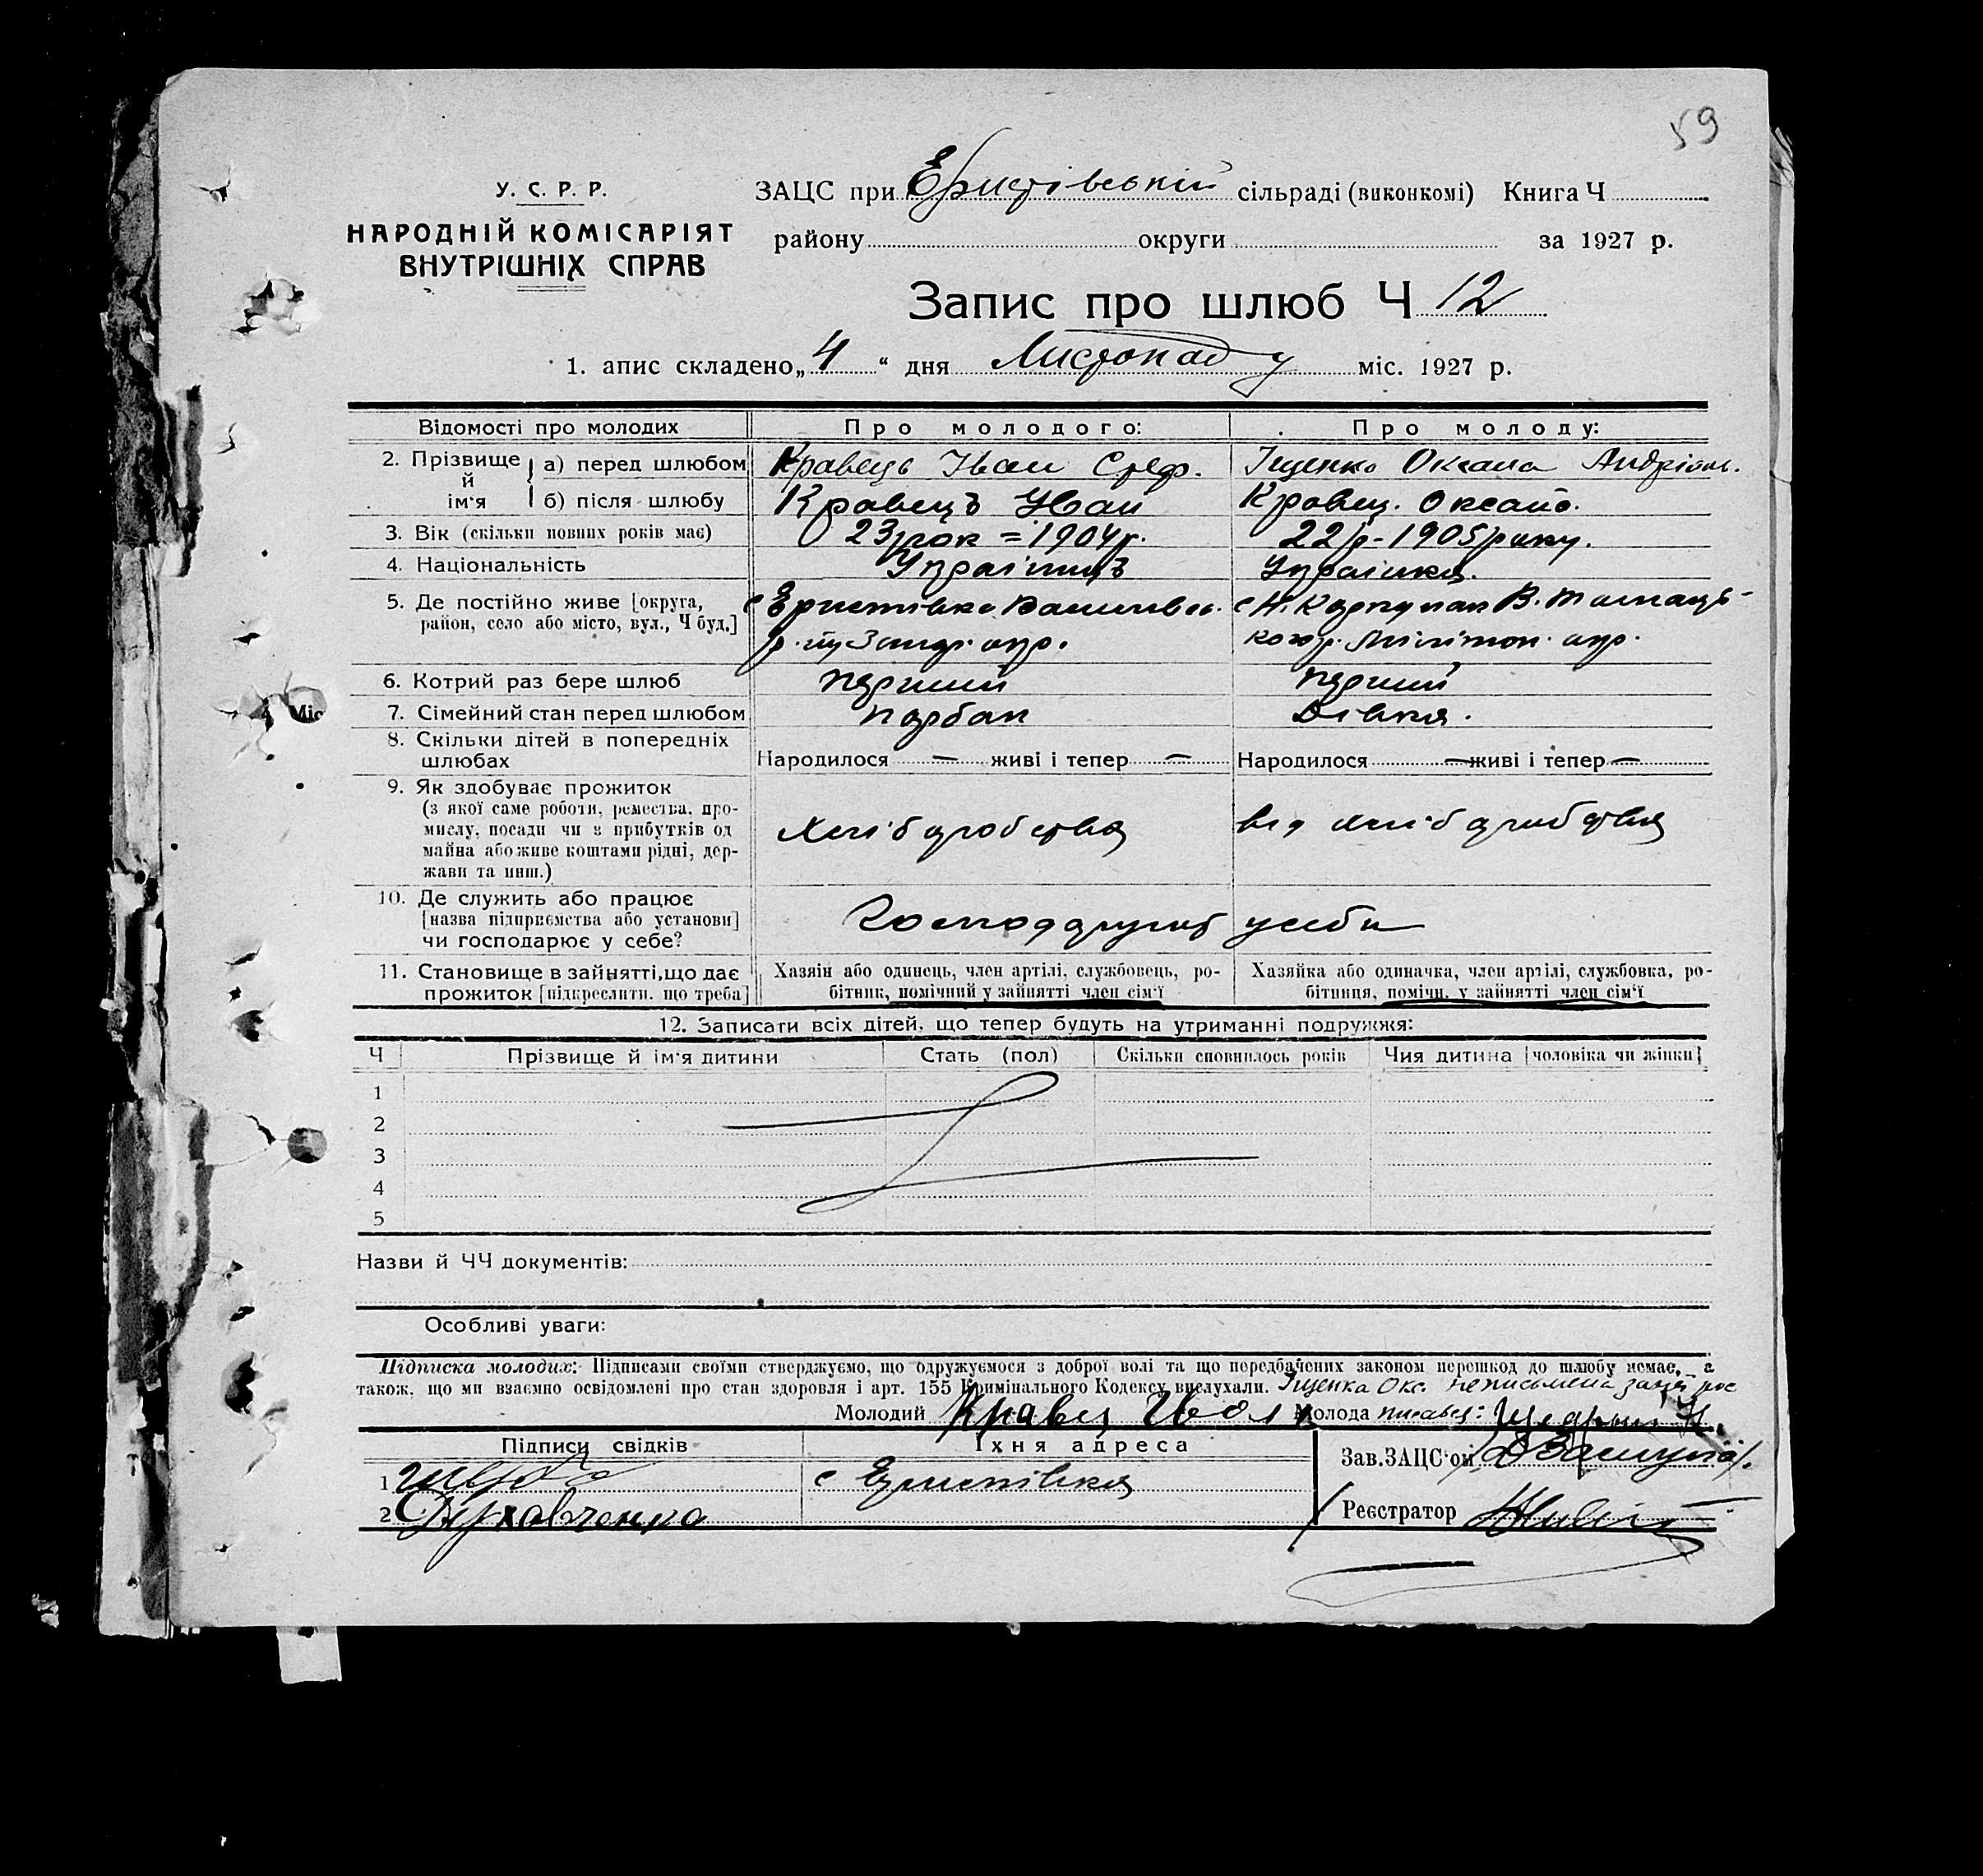 59
У. С. Р. Р.
НАРОДНІЙ КОМІСАРІЯТ
ВНУТРІШНІХ СПРАВ
ЗАЦС при Еристівській сільраді (виконкомі) Книга Ч
району округи за 1927 р.
Запис про шлюб Ч 12
1. апис складено „4“ дня Листопаду міс. 1927 р.
Відомості про молодих Про молодого: Про молоду:
2. Прізвище й ім'я
а) перед шлюбом Кравець Іван Стеф. Іщенко Оксана Андріян.
б) після шлюбу Кравець Іван Кравец. Оксана.
3. Вік (скільки повних років має) 23 рок = 1904 р. 22 р - 1905 року.
4. Національність Українець Українка.
5. Де постійно живе [округа, район, село або місто, вул., Ч буд.] с Еристівка с Н.
окр. окр.
6. Котрий раз бере шлюб перший перший
7. Сімейний стан перед шлюбом парбак Дівка.
4 Міс
8. Скільки дітей в попередніх шлюбах Народилося — живі і тепер — Народилося — живі і тепер —
9. Як здобуває прожиток
(з якої саме роботи, ремества, промислу, посади чи з прибутків од майна або живе коштами рідні, держави та инш.) Хлібаробства від хлібаробства
10. Де служить або працює
[назва підприємства або установи]
чи господарює у себе? у себе
11. Становище в зайнятті, що дає прожиток [підкреслити. що треба] Хазяін або одинець, член артілі, службовець, робітник, помічний у зайнятті член сім'ї Хазяйка або одиначка, член артілі, службовка, робітниця, помічн. у зайнятті член сім'ї
12. Записати всіх дітей, що тепер будуть на утриманні подружжя:
Ч Прізвище й ім'я дитини Стать (пол) Скільки сповнилось років Чия дитина [чоловіка чи жінки]
1
2
3
4
5
Назви й ЧЧ документів:
Особливі уваги:
Підписка молодих: Підписами своїми стверджуємо, що одружуємося з доброї волі та що передбачених законом перешкод до шлюбу немає, а
також, що ми взаємно освідомлені про стан здоровля і арт. 155 Кримінального Кодексу вислухали. Іщенка Окс. неписьмена за неї рос
Молодий Кравец Іван Молода писавсь:
Підписи свідків Їхня адреса
1 с Еристівка
2
Зав. ЗАЦС'ом
Реєстратор